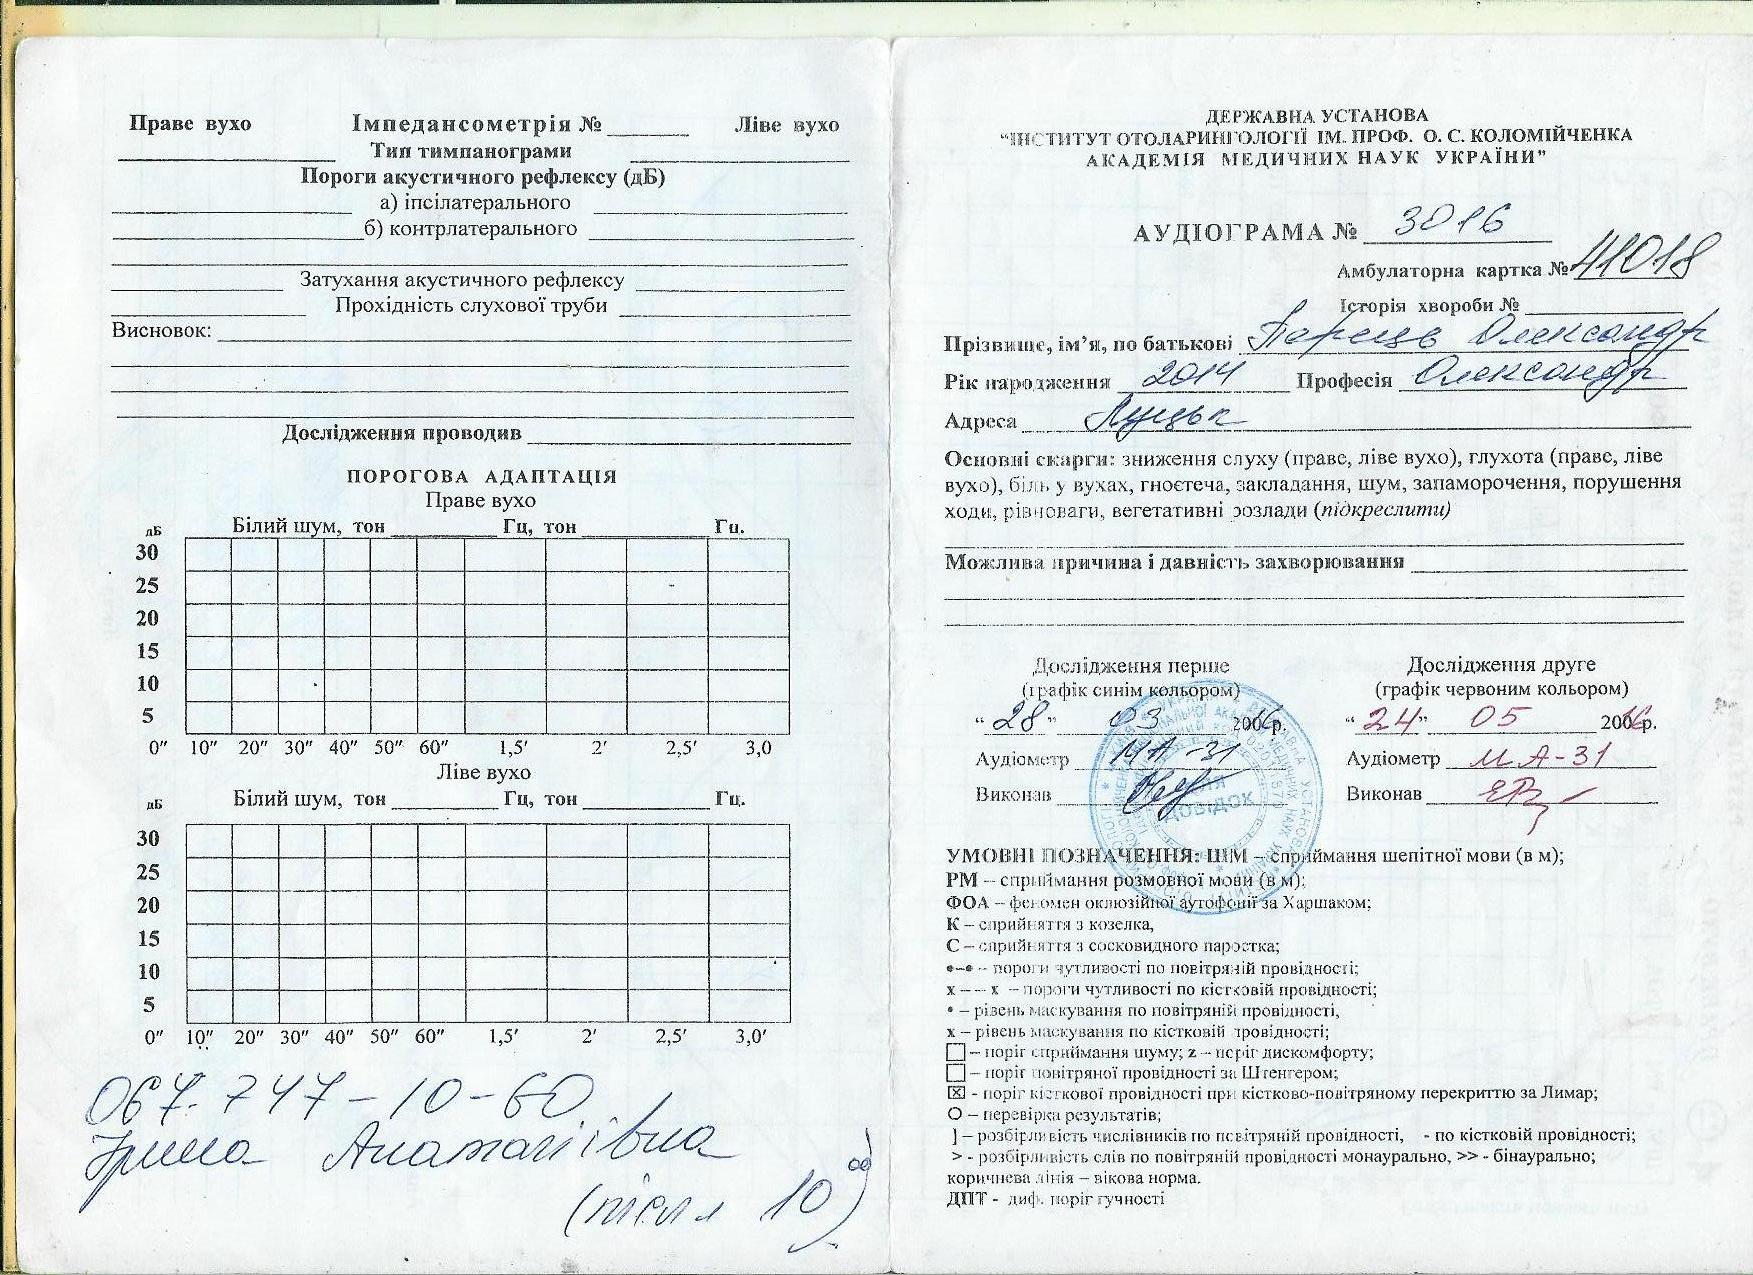 Праве вухо Імпедансометрія № Ліве вухо
Тип тимпанограми
Пороги акустичного рефлексу (дБ)
а) іпсілатерального
б) контрлатерального
Затухання акустичного рефлексу
Прохідність слухової труби
Висновок:
Дослідження проводив
ПОРОГОВА АДАПТАЦІЯ
Праве вухо
дБ Білий шум, тон Гц, тон Гц.
30
25
20
15
10
5
0" 10" 20" 30" 40" 50" 60" 1,5' 2' 2,5' 3,0
Ліве вухо
дБ Білий шум, тон Гц, тон Гц.
30
25
20
15
10
5
0" 10" 20" 30" 40" 50" 60" 1,5' 2' 2,5' 3,0'
067-747-10-60
Ірина Анатоліївна
(після 10 00)
ДЕРЖАВНА УСТАНОВА
"ІНСТИТУТ ОТОЛАРИНГОЛОГІЇ ІМ. ПРОФ. О. С. КОЛОМІЙЧЕНКА
АКАДЕМІЯ МЕДИЧНИХ НАУК УКРАЇНИ"
АУДІОГРАМА № 3016
Амбулаторна картка № 41018
Історія хвороби №
Прізвище, ім'я, по батькові Олександр
Рік народження 2014 Професія Олександр
Адреса Луцьк
Основні скарги: зниження слуху (праве, ліве вухо), глухота (праве, ліве
вухо), біль у вухах, гноєтеча, закладання, шум, запаморочення, порушення
ходи, рівноваги, вегетативні розлади (підкреслити)
Можлива причина і давність захворювання
Дослідження перше
(графік синім кольором)
"28" 03 2016р.
Аудіометр МА-31
Виконав
Дослідження друге
(графік червоним кольором)
"24" 05 2016р.
Аудіометр МА-31
Виконав
ДОВІДОК
УМОВНІ ПОЗНАЧЕННЯ: ШМ – сприймання шепітної мови (в м);
РМ – сприймання розмовної мови (в м);
ФОА – феномен оклюзійної аутофонії за Харшаком;
К – сприйняття з козелка,
С – сприйняття з сосковидного паростка;
•–• – пороги чутливості по повітряній провідності;
х – – х – пороги чутливості по кістковій провідності;
• – рівень маскування по повітряній провідності,
х – рівень маскування по кістковій провідності;
☐ – поріг сприймання шуму; z – поріг дискомфорту;
☐ – поріг повітряної провідності за Штенгером;
☒ - поріг кісткової провідності при кістково-повітряному перекриттю за Лимар;
О – перевірка результатів;
] – розбірливість числівників по повітряній провідності, - по кістковій провідності;
> - розбірливість слів по повітряній провідності монаурально, >> - бінаурально;
коричнева лінія – вікова норма.
ДПТ - диф. поріг гучності